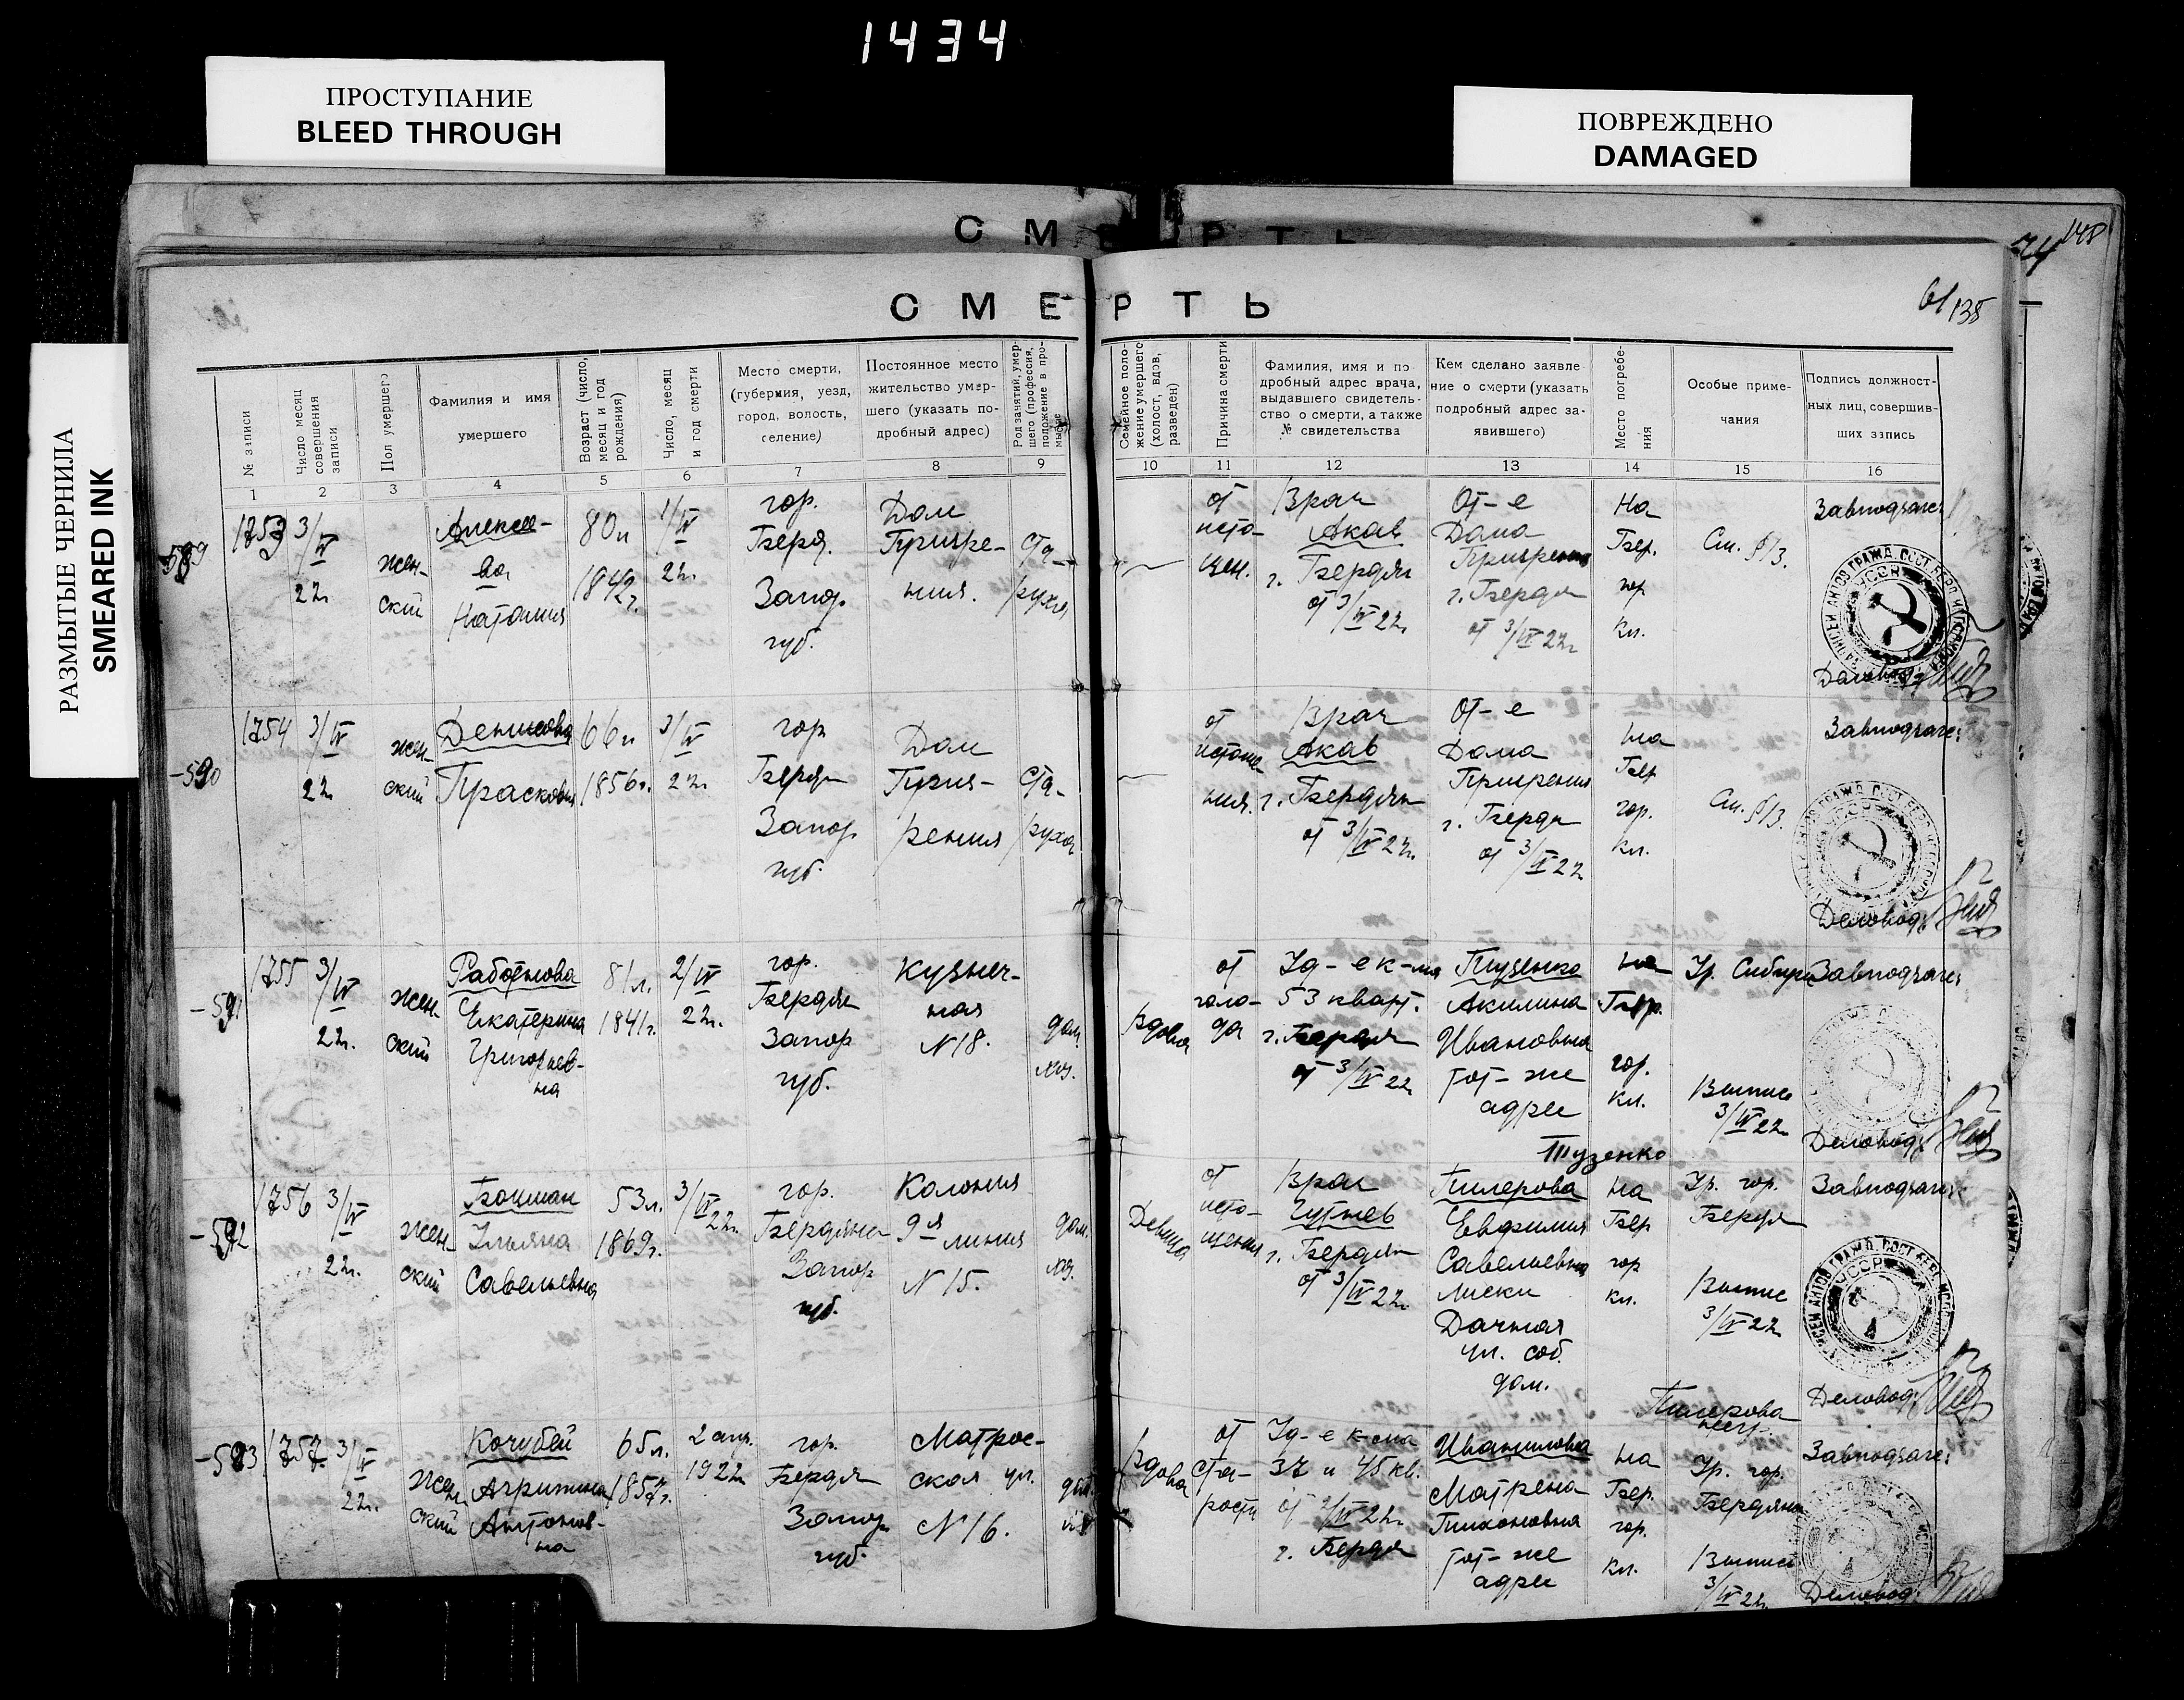 1434
ПРОСТУПАНИЕ
BLEED THROUGH
ПОВРЕЖДЕНО
DAMAGED
РАЗМЫТЫЕ ЧЕРНИЛА
SMEARED INK
148
74
СМЕРТЬ
СМЕРТЬ
61
138
№ записи
Число месяц совершения записи
Пол умершего
Фамилия и имя умершего
Возраст (число, месяц и год рождения)
Число, месяц и год смерти
Место смерти, (губерния, уезд, город, волость, селение)
Постоянное место жительство умершего (указать подробный адрес)
Род занятий, умершего (профессия, положение в промысле
Семейное положение умершего (холост, вдов, разведен)
Причина смерти
Фамилия, имя и подробный адрес врача, выдавшего свидетельство о смерти, а также № свидетельства
Кем сделано заявление о смерти (указать подробный адрес заявившего)
Место погребения
Особые примечания
Подпись должностных лиц, совершивших запись
1 2 3 4 5 6 7 8 9 10 11 12 13 14 15 16
589
1753
3/IV
22г.
жен-
ский
Алексее-
ва
Наталия
80л
1842г.
1/IV
22г.
гор.
Бердя.
Запор
губ.
Дом
Призре-
ния.
Ста-
руха
от
исто-
щен.
Врач
Акав
г. Бердян
от 3/IV 22г.
От-е
Дома
Призрения
г. Бердя
от 3/IV 22г
На
Бер.
гор
кл.
См. б/з.
Завподзаге:
Деловод:
-590
1754
3/IV
22г.
жен-
ский
Денисова
Прасковья
66л
1856г.
3/IV
22г.
гор
Бердя
Запор
губ.
Дом
Приз-
рения
Ста-
руха
от
истоще
ния.
Врач
Акав
г. Бердян
от 3/IV 22г.
От-е
Дома
Призрения
г. Бердя
от 3/IV 22
на
Бер
гор.
кл.
См. б/з.
Завподзаге:
Деловод:
-591
1755
3/IV
22г.
жен-
ский
Работнова
Екатерина
Григорьев-
на
81л.
1841г.
2/IV
22г.
гор.
Бердян
Запор
губ.
Кузнеч-
ная
№18.
дом.
хоз.
Вдова
от
голо-
да
Уд-е к-та
53 кварт.
г. Бердя
от 3/IV 22
Тузенко
Акилина
Ивановна
тот-же
адрес
Тузенко
на
Бер.
гор.
кл.
Ур. Сибири
Выпис
3/IV 22
Завподзаге:
Деловод:
-592
1756
3/IV
22г.
жен-
ский
Боцман
Ульяна
Савельевна
53л.
1869г.
3/IV
22г.
гор.
Бердянск
Запор
губ.
Колония
9я линия
№15.
дом.
хоз.
Девица
от
исто-
щения
Врач
г. Бердян
от 3/IV 22г.
Пилерова
Евфимия
Савельевна
лиски
Дачная
ул. соб.
дом.
Пилерова
на
Бер
гор
кл.
Ур. гор.
Бердян
Выпис
3/IV 22
Завподзаге:
Деловод:
-593
1757
3/IV
22г.
жен-
ский
Кочубей
Агрипина
Антонов-
на
65л.
1857г.
2 апр.
1922
гор.
Бердя
Запор
губ.
Матрос-
ская ул.
№16.
Вдова
от
Ста-
рости
Уд-е к-та
37 и 45 кв.
от 2/IV 22г.
г. Бердя
Иванилова
Матрена
Тихоновна
тот-же
адрес
на
Бер.
гор.
кл.
Ур. гор.
Бердянск
Выпис
3/IV 22
Завподзаге:
Деловод: